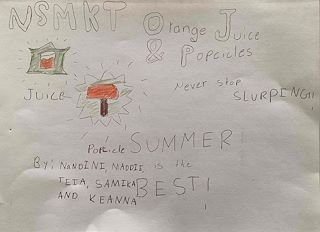 NSMKT Orange Juice
& Popcicles
Never stop
SLURPING!!
JUICE
Popcicle SUMMER
is the
BEST!
By: NANDINI, MADDIE,
TEIA, SAMIKA
AND KEANNA